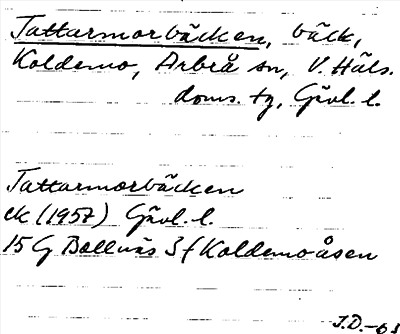 Tattarmorbäcken, bäck,
Koldemo, Arbrå sn, V. Häls.
doms. tg, Gävl. l.
Tattarmorbäcken
ek (1957) Gävl. l.
15 G Bollnäs 3 f Koldemoåsen
J.D. -63